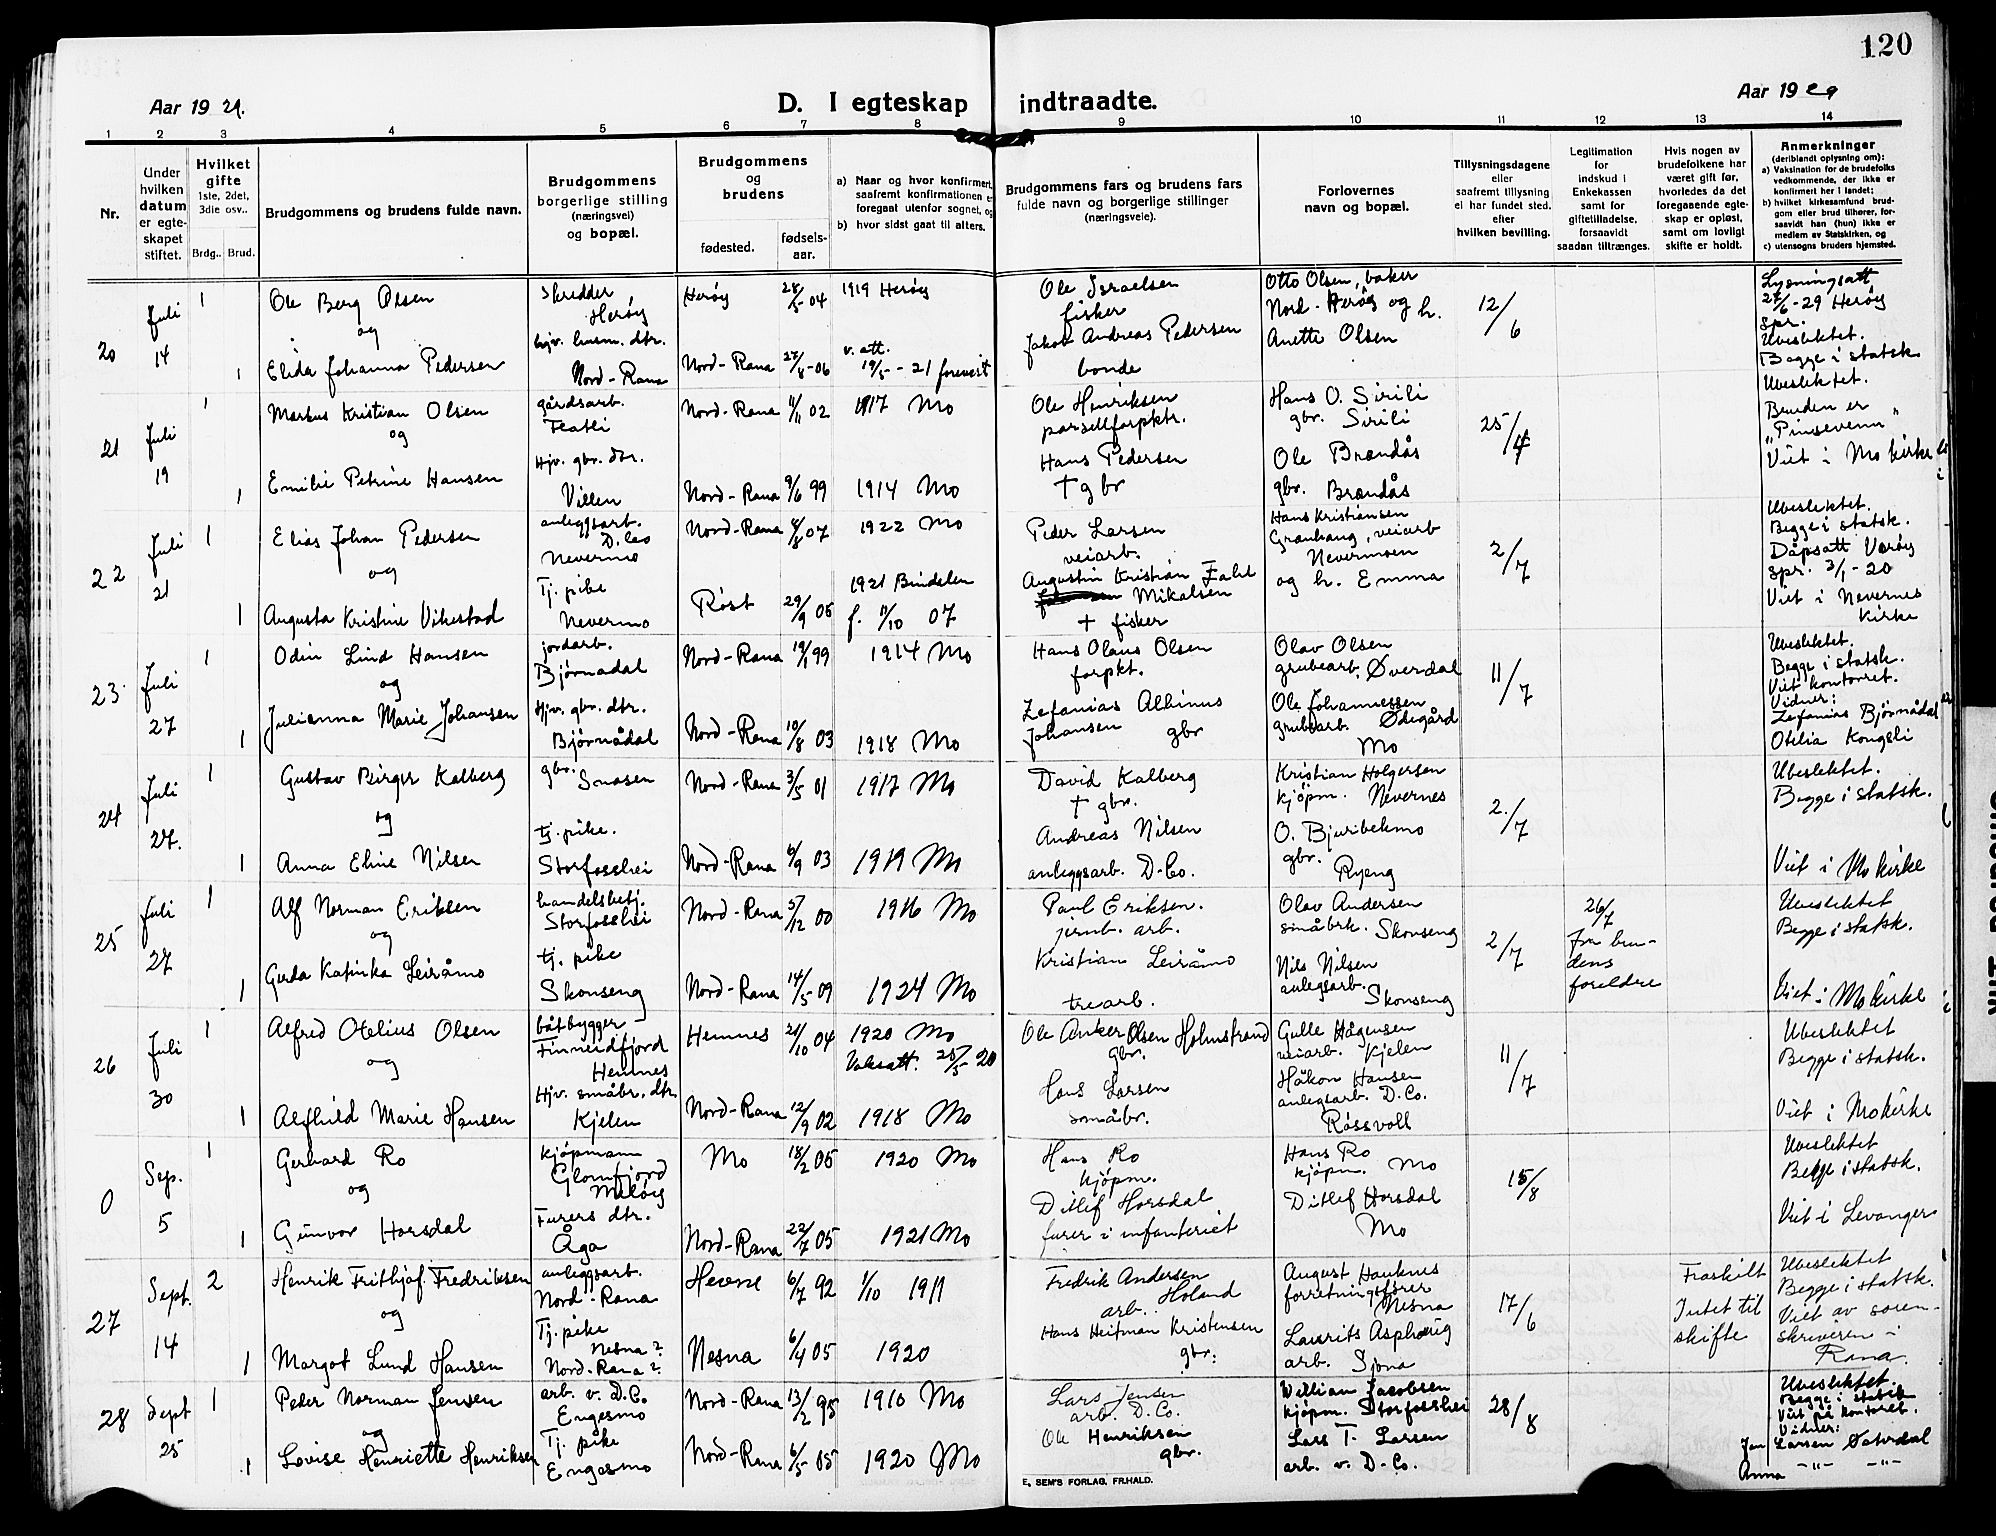 120
Aar 19 29.
D. I egteskap indtraadte.
Aar 19 29
1 2 3 4 5 6 7 8 9 10 11 12 13 14
Nr.
Under hvilken datum er egte-skapet stiftet.
Hvilket gifte 1ste, 2det, 3die osv..
Brdg.. Brud.
Brudgommens og brudens fulde navn.
Brudgommens borgerlige stilling (næringsvei) og bopæl.
Brudgommens og brudens
fødested. fødsels-aar.
a) Naar og hvor konfirmert, saafremt konfirmationen er foregaat utenfor sognet, og
b) hvor sidst gaat til alters.
Brudgommens fars og brudens fars fulde navn og borgerlige stillinger (næringsveie).
Forlovernes navn og bopæl.
Tillysningsdagene eller saafremt tillysning ei har fundet sted, efter hvilken bevilling.
Legitimation for indskud i Enkekassen samt for giftetilladelse, forsaavidt saadan tiltrænges.
Hvis nogen av brudefolkene har været gift før, hvorledes da det foregaaende egte-skap er opløst, samt om lovligt skifte er holdt.
Anmerkninger (deriblandt oplysning om): a) Vaksination for de brudefolks vedkommende, der ikke er konfirmert her i landet; b) hvilket kirkesamfund brud-gom eller brud tilhører, for-saavidt han (hun) ikke er medlem av Statskirken, og c) utensogns bruders hjemsted.
20 Juli 14 1 Ole Berg Olsen Skredder, Herøy Herøy 28/5-04 1919 Herøy Ole Israelsen fisker Otto Olsen, baker Nord-Herøy og h. 12/6 Lysningsatt 27/6-29 Herøy spr.
og
1 Elida Johanna Pedersen hjv. husm. dtr. Nord-Rana Nord-Rana 27/8-06 v. att. 19/5-21 forevist Jakob Andreas Pedersen bonde Anette Olsen Ubeslektet. Begge i statsk.
21 Juli 19 1 Markus Kristian Olsen gårdsarb. Nord-Rana 11/11 02 1917 Mo Ole Henriksen parsellforpktr. Hans O. Sirili gbr. Sirili 25/4 Ubeslektet. Bruden er "Pinsevenn"
og
1 Emilie Petrine Hansen Hjv. gbr. dtr. Villen Nord-Rana 9/6 99 1914 Mo Hans Pedersen † gbr Ole Brændås gbr. Brændås Viet i Mo kirke
22 Juli 21 1 Elias Johan Pedersen anleggsarb. D. Co Nevermo Nord-Rana 4/8 07 1922 Mo Peder Larsen veiarb. Hans Kristiansen Granhaug, veiarb Nevermoen 2/7 Ubeslektet. Begge i statsk.
og
1 Augusta Kristine Vikestad Tj. pike Nevermo Røst 29/9 05 1921 Bindalen f. 11/10 07 Augustin Kristian Mikalsen † fisker og h. Emma Dåpsatt Værøy spr. 3/1-20 Viet i Nevernes Kirke
23 Juli 27 1 Odin Lind Hansen jordarb. Bjørnadal Nord-Rana 19/1 99 1914 Mo Hans Olaus Olsen forpkt. Olav Olsen grubearb. Øverdal 11/7 Ubeslektet. Begge i statsk.
og
1 Julianna Marie Johansen Hjv. gbr. dtr. Bjørnådal Nord-Rana 10/8 03 1918 Mo Zefanias Albinus Johansen gbr Ole Johannessen grubearb. Ødegård Mo Viet kontoret. Vidner: Zefanias Bjørnådal Otelia Kongsli
24 Juli 27. 1 Gustav Birger Kalberg gbr. Snasen Nord-Rana 3/5 01 1917 Mo David Kalberg † gbr. Kristian Holgersen kjøpm. Nevernes 2./7 Ubeslektet. Begge i statsk.
og
1 Anna Eline Nilsen tj. pike. Storfosshei Nord-Rana 6/9 03 1919 Mo Andreas Nilsen anleggsarb. D. Co. O. Bjuribekmo gbr. Ryeng Viet i Mo kirke
25 Juli 27 1 Alf Norman Eriksen handelsbetj. Storfosshei Nord-Rana 5/12 00 1916 Mo Paul Eriksen. jernb. arb. Olav Andersen småbrk. Skonseng 2/7 26/7 Fra bru-dens foreldre Ubeslektet Begge i statsk.
og
1 Gerda Katinka Leiråmo tj. pike Skonseng Nord-Rana 14/5 09 1924 Mo Kristian Leiråmo trearb. Nils Nilsen anlegsarb. Skonseng Viet i Mo kirke
26 Juli 30 1 Alfred Otelius Olsen båtbygger Finneidfjord Hemnes Hemnes 21/10 04 1920 Mo Vaksatt. 25/5-20 Ole Anker Olsen Holmstrand gbr. Gulle Hågensen veiarb. Kjelen 11/7 Ubeslektet Begge i statsk.
og
1 Alfhild Marie Hansen Hjv. småbr. dtr Kjelen Nord-Rana 12/9 02 1918 Mo Hans Larsen småbr. Håkon Hansen anlegsarb. D. Co. Røssvoll Viet i Mo kirke
0 Sep. 5 1 Gerhard Ro kjøpmann Glomfjord Meløy Mo 18/2 05 1920 Mo Hans Ro kjøpm. Hans Ro kjøpm. Mo 15/8 Ubeslektet Begge i statsk.
og
1 Gunvor Horsdal Furers dtr. Åga Nord-Rana 22/7 05 1921 Mo Ditlef Horsdal furer i infanteriet Ditlef Horsdal Mo Viet i Levanger
27 Sept. 14 2 Henrik Frithjof Fredriksen anleggsarb. Nord-Rana Hevne 6/7 92 1/10 1911 Fredrik Andersen Holand arb. August Hauknes forretningsfører Nesna 17/6 Fraskilt Intet til skifte Ubeslektet Begge i statsk.
og
1 Margot Lund Hansen Tj. pike Nesna? Nord-Rana? Nesna 6/4 05 1920 Hans Heitman Kristensen gbr. Laurits Asphaug arb. Sjona Viet av soren-skriveren i Rana.
28 Sept 25 1 Peder Norman Jensen arb. v. D. Co Engesmo Nord-Rana 13/2 95 1910 Mo Lars Jensen arb. D. Co. William Jacobsen kjøpm. Storfosshei 28/8 Ubeslektet. Begge i statsk Viet på kontoret. Vidner:
og
1 Lovise Henriette Henriksen Tj. pike Engesmo Nord-Rana 6/5 05 1920 Mo Ole Henriksen gbr. Lars T. Larsen arb. v. D. Co. Jen Larsen Sæterdal Anna -"- -"-
E. SEM'S FORLAG, FR.HALD.